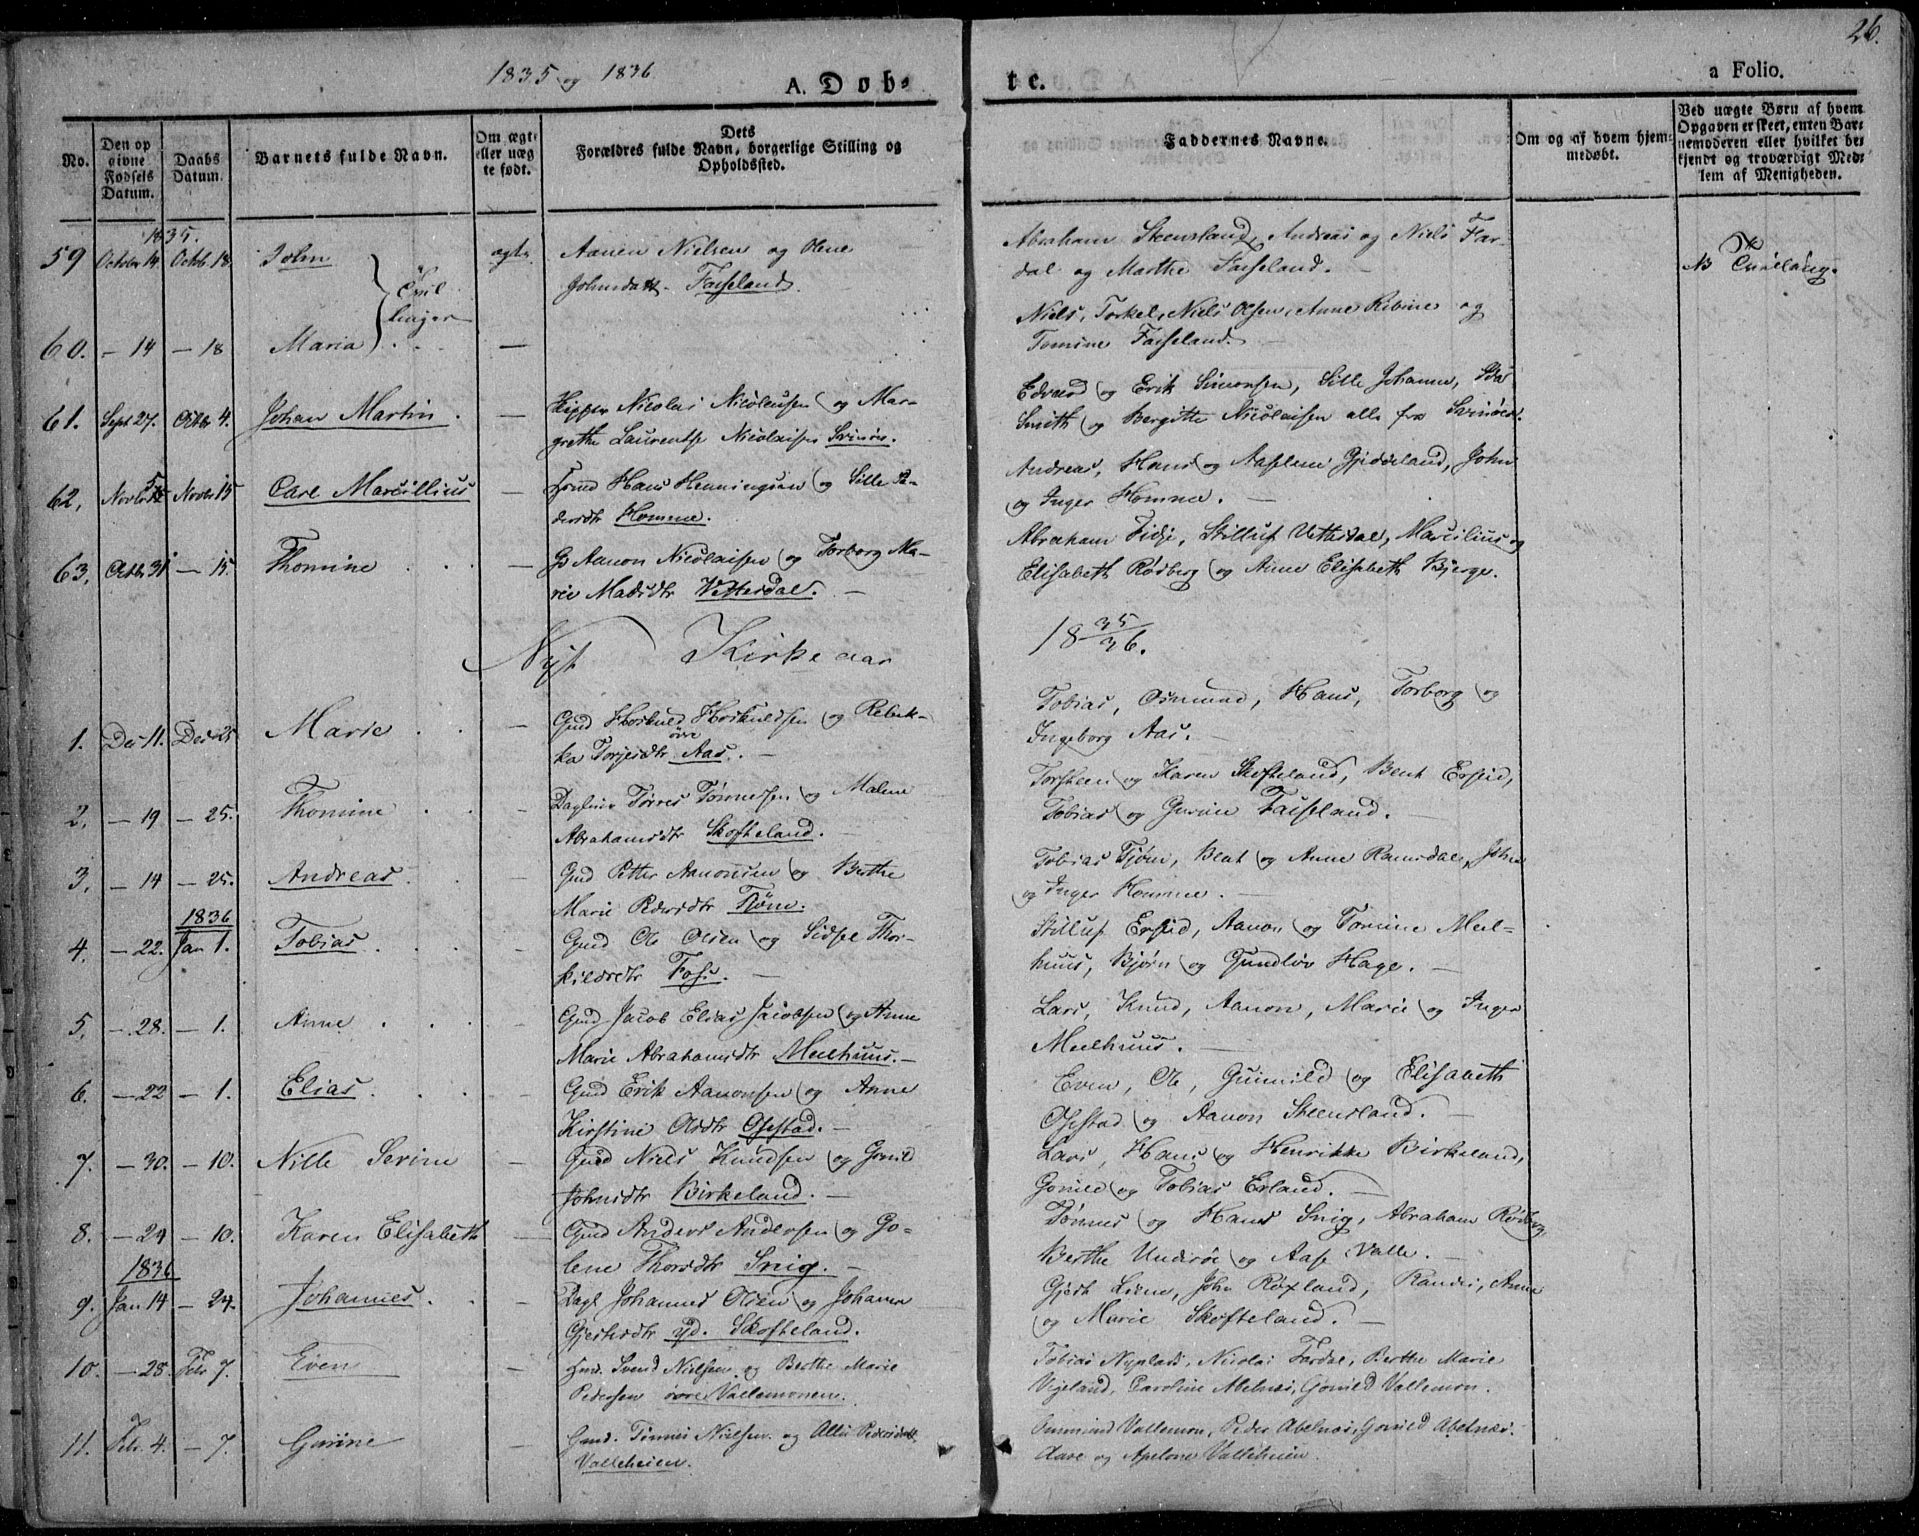 26.
1835 og 1836
A. Døb-
te.
a Folio.
No.
Den op
givne
Fødsels
Datum.
Daabs
Datum.
Barnets fulde Navn.
Om ægte
eller uæg
te født.
Dets
Forældres fulde Navn, borgerlige Stilling og
Opholdssted.
Faddernes Navne.
Om og af hvem hjem-
medøbt.
Ved uægte Børn af hvem
Opgaven er skeet, enten Bar-
nemoderen eller hvilket be-
kjendt og troværdigt Med-
lem af Menigheden.
1835.
59 October 14 Octob. 18. John ægte Aanen Nielsen og Olene
Johnsdatt. Faiseland.
Abraham Steensland, Andreas og Niels Far-
dal og Marthe Faiseland.
NB Tvillinge.
Tvil
linger
60. — 14 — 18 Maria —
Niels, Torkel, Niels Olsen, Anne Ribine og
Tomine Faiseland.
61. Sept 27. Octbr 4. Johan Martin —
Nicolai Nicolaisen og Mar-
grethe Laurentse Nicolaisen Svinør.
Edvard og Erik Simonsen, Sille Johanne,
Smith og Bergitte Nicolaisen alle fra Svinør.
62. Novbr 5 Novbr 15 Carl Marcillius —
Hans Henningsen og Sille Pe-
dersdtr Homme.
Andreas, Hans og Aaslene Gjideland, John
og Inger Homme.
63. Octbr 31 — 15. Thomine —
Gb Aanon Nicolaisen og Torborg Ma-
rie Madsdtr Vettesdal.
Abraham Fidje, Stilluf Vettesdal, Marcilius og
Elisabeth Rødberg og Anne Elisabeth Bjerge.
Nyt Kirkeaar
18 35/36.
1. Dec 11. Decbr 25 Marie —
Gmd Hoskuld Hoskuldsen og Rebek-
ka Torjersdtr øvre Aas.
Tobias, Osmund, Hans, Torborg og
Ingeborg Aas.
2. — 19 — 25. Thomine —
Daglnr Tørres Tønnessen og Malene
Abrahamsdtr Skofteland.
Torsteen og Karen Skofteland, Bent Ersfid,
Tobias og Gurine Faiseland.
3. — 14 — 25. Andreas —
Gmd Petter Aanonsen og Berthe
Marie Pedersdtr Tjøm.
Tobias Tjøm, Bent og Anne Ramsdal, John
og Inger Homme.
1836
4. — 22. Jan 1. Tobias —
Gmd Ole Olsen og Sidsel Thor-
kildsdtr Foss.
Stilluf Ersfid, Aanon og Tomine Meel-
huus, Bjørn og Gundløv Hage.
5. — 28. — 1. Anne —
Gmd Jacob Elias Jacobsen og Anne
Marie Abrahamsdtr Meelhuus.
Lars, Knud, Aanon, Marie og Inger
Meelhuus.
6. — 22 — 1. Elias —
Gmd Erik Aanonsen og Anne
Kirstine Olsdtr Osestad.
Even, Ole, Guimild og Elisabeth
Osestad og Aanon Steensland.
7. — 30. — 10. Nille Serine —
Gmd Niels Knudsen og Gonild
Johnsdtr Birkeland.
Lars, Hans og Henrikke Birkeland,
Gonild og Tobias Erland.
8. — 24 — 10. Karen Elisabeth —
Gmd Anders Andersen og Go-
lene Thorsdtr Snig.
Tønnes og Hans Snig, Abraham Rødberg,
Berthe Underøe og Aase Valle.
1836
9. Jan 14 — 24. Johannes —
Dagl Johannes Olsen og Johanne
Gjertsdtr yd. Skofteland.
Gjert Liene, John Røxland, Randi, Anne
og Marie Skofteland.
10. — 28. Febr 7. Even —
Gmd. Svend Nielsen og Berthe Marie
Pedersen øvre Vallemonen.
Tobias Nyplads, Nicolai Fardal, Berthe Marie
Vigeland, Caroline Abelnes, Gonild Vallemon.
11. Febr. 4. — 7. Gurine —
Gmd. Tønnes Nielsen og Alli Pedersdatt.
Valleheien.
Ommund Vallemon, Peder Abelnæs, Gonild Abelnæs.
Aave og Apelone Valleheien.